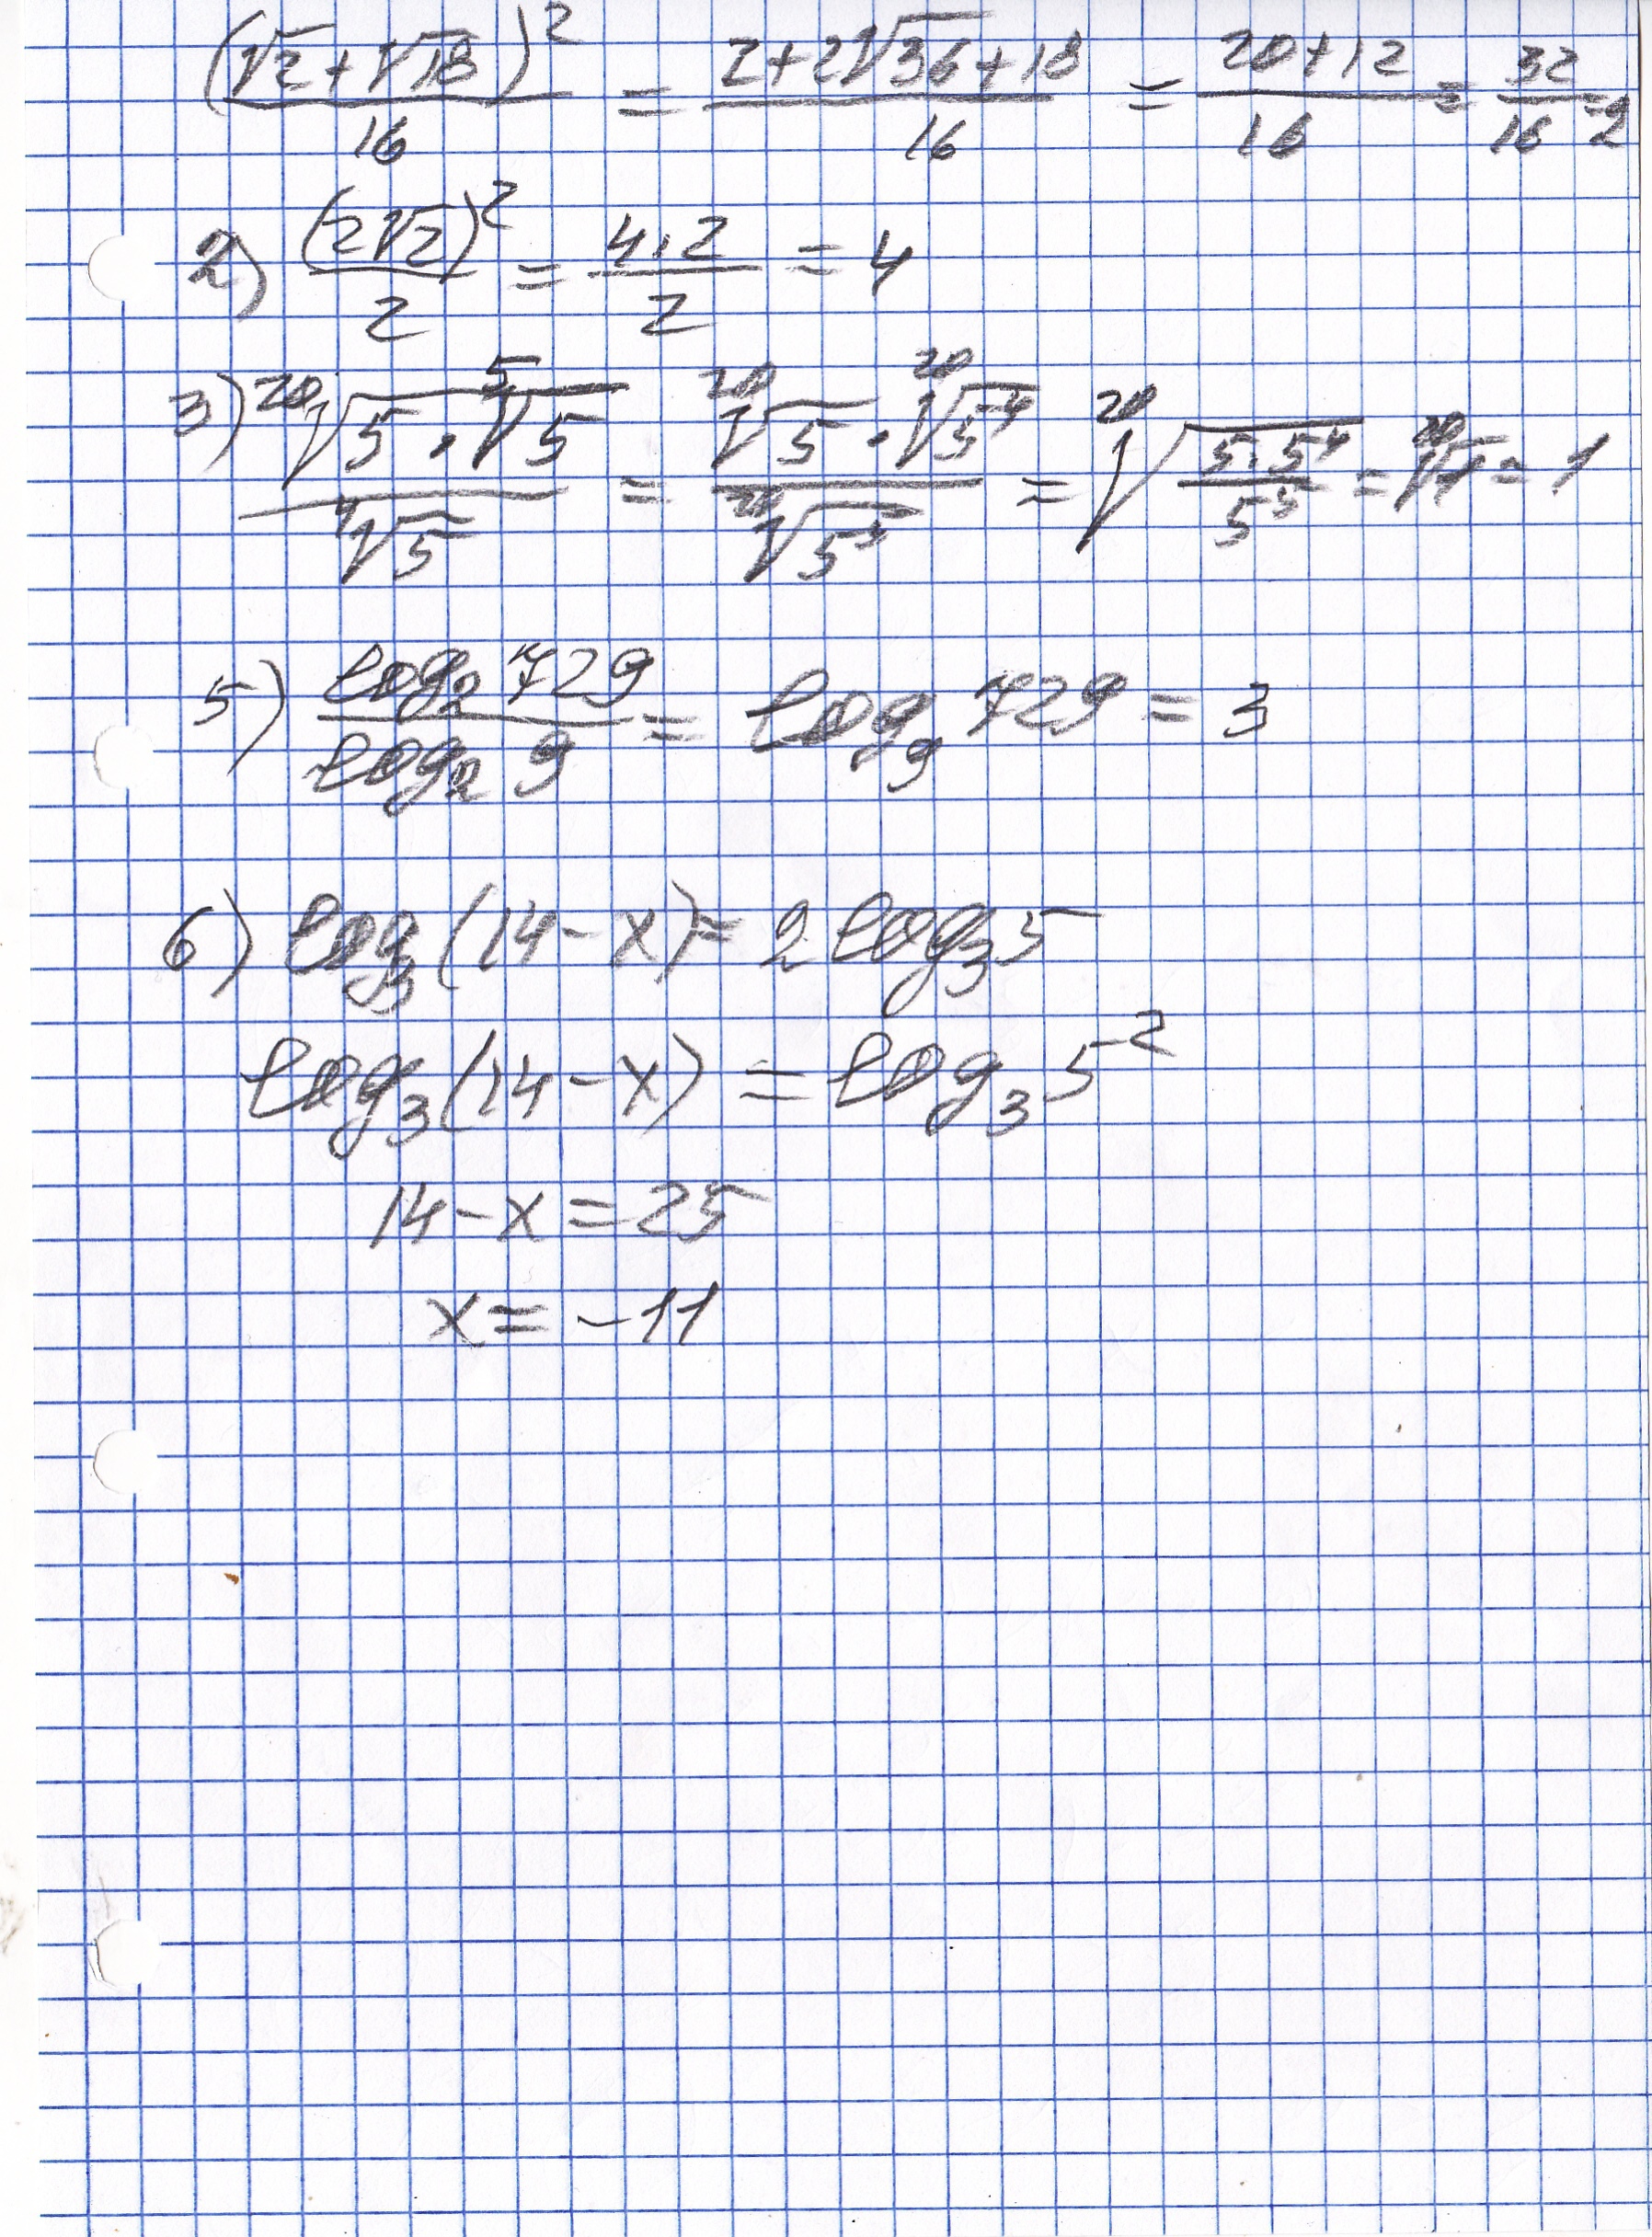 (√2+√18)²/16 = (2+2√36+18)/16 = (20+12)/16 = 32/16 = 2
2) (2√2)²/2 = 4·2/2 = 4
3) ²⁰√5·⁵√5/⁴√5 = ²⁰√5·²⁰√5⁴/²⁰√5⁵ = ²⁰√(5·5⁴/5⁵) = ²⁰√1 = 1
5) log₂729/log₂9 = log₉729 = 3
6) log₃(14-x) = 2log₃5
log₃(14-x) = log₃5²
14-x=25
x= -11